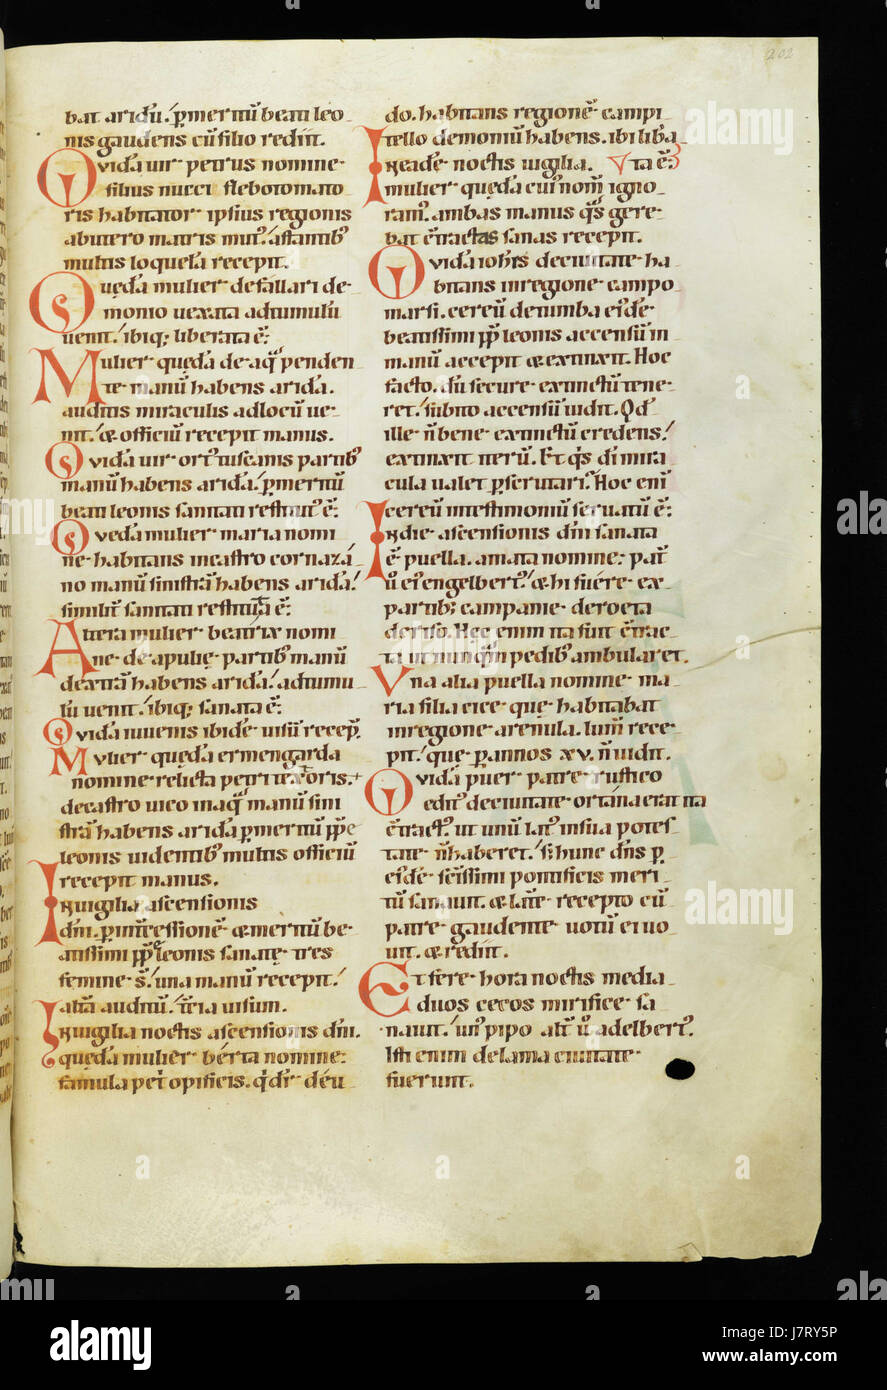 202
bat aridū. ꝑ meritū beati leo
nis gaudens cū filio rediit.
Quidā uir petrus nomine
filius nucci flebotomato
ris habitator ipsius regionis
ab utero matris mut᾽. astantib᾽
multis loquelā recepit.
Quedā mulier de fallari de
monio uexata ad tumulū
uenit. ibiq; liberata ē.
Mulier quedā de aq̄ penden
te manū habens aridā.
auditis miraculis ad locū ue
nit. & officiū recepit manus.
Quidā uir ort᾽ tuscanis partib᾽
manū habens aridā. ꝑ meritū
beati leonis sanitati restitut᾽ ē.
Quedā mulier maria nomi
ne habitans in castro cornazā
no manū sinistrā habens aridā.
similit̄ sanitati restituta ē.
Altera mulier beatrix nomi
ne de apulię partib᾽ manū
dextrā habens aridā. ad tumu
lū uenit. ibiq; sanata ē.
Quidā iuuenis ibidē uisū recep̄.
Mulier quedā ermengarda
nomine relicta petri textoris.
de castro uico in aq̄ manū sini
strā habens aridā ꝑ meritū pp̄e
leonis uidentib᾽ multis officiū
recepit manus.
In uigilia ascensionis
dn̄i. ꝑ intercessionē & meritū be
atissimi pp̄e leonis sanatę tres
femine. s. una manū recepit.
alia auditū. t̄cia uisum.
In uigilia noctis ascensionis dn̄i.
quedā mulier berta nomine.
famula pet̄ opificis. q̄ dr̄ de u
do. habitans regionē campi
tello demoniū habens. ibi libāta ē.
In eadē noctis uigilia.
mulier quedā cui᾽ nom̄ igno
ram᾽. ambas manus q̄s gere
bat ctractas sanas recepit.
Quidā ioh̄s de ciuitate ha
bitans in regione campo
marsi. cereū de tumba ei᾽dē
beatissimi pp̄ leonis accensū in
manū accepit & extinxit. Hoc
facto. dū secure extinctū tene
ret. subito accensū uidit. Qd̄
ille n̄ bene extinctū credens.
extinxit iterū. Et q̄s di mira
cula ualet ꝑscrutari. Hoc eni
cereū in testimoniū seruatū ē.
In die ascensionis dn̄i sanata
ē puella. amata nomine. pat̄
ū ei᾽ engelbert᾽. & hi fuere ex
partib; campanie de roeta
de riso. Hec enim ita fuit ctrac
ta ut nunq̄m pedib᾽ ambularet.
Una alia puella nomine ma
ria filia cice que habitabat
in regione arenula. lum̄ rece
pit. que ꝑ annos xv. n̄ uidit.
Quidā puer patre rustico
edit᾽ de ciuitate ortana erat ita
ctract᾽ ut unū lat᾽ in sua potes
tate n̄ haberet. s; hunc dn̄s ꝑ
ei᾽dē scīssimi pontificis meri
tū sanauit. & latē recepto cū
patre gaudente uotū ei uo
uit. & rediit.
Et fere hora noctis media
duos cecos mirifice sa
nauit. un᾽ pipo alt̄ ū adelbert᾽.
Isti enim de lama ciuitate
fuerunt.
alamy
a
alamy
Image ID: J7RY5P
www.alamy.com